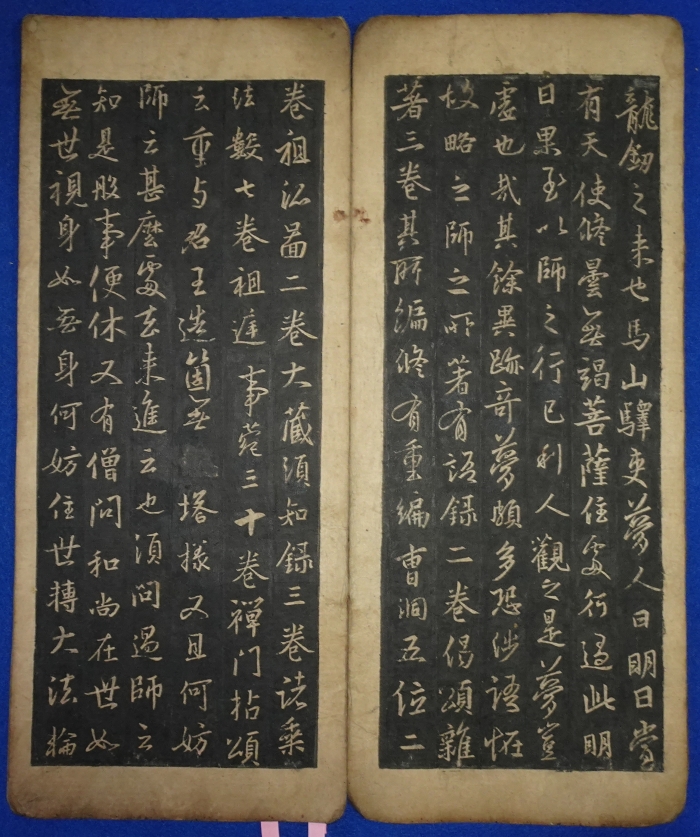 龍釰之来也馬山驛吏夢人曰明日當
有天使脩曇無竭菩薩住處行過此明
日果至以師之行已利人觀之是夢豈
虛也㢤其餘異跡奇夢頗多恐涉語恠
故略之師之所著有語録二卷偈頌雜
著三卷其所編修有重編曹洞五位二
卷祖泒圖二卷大藏須知録三卷諸乘
法數七卷祖遑事菀三十卷禪门拈頌
云重与君王造箇無塔㨾又且何妨
師云甚麽處去来進云也須問過師云
知是般事便休又有僧問和尚在世如
無世視身如無身何妨住世轉大法輪